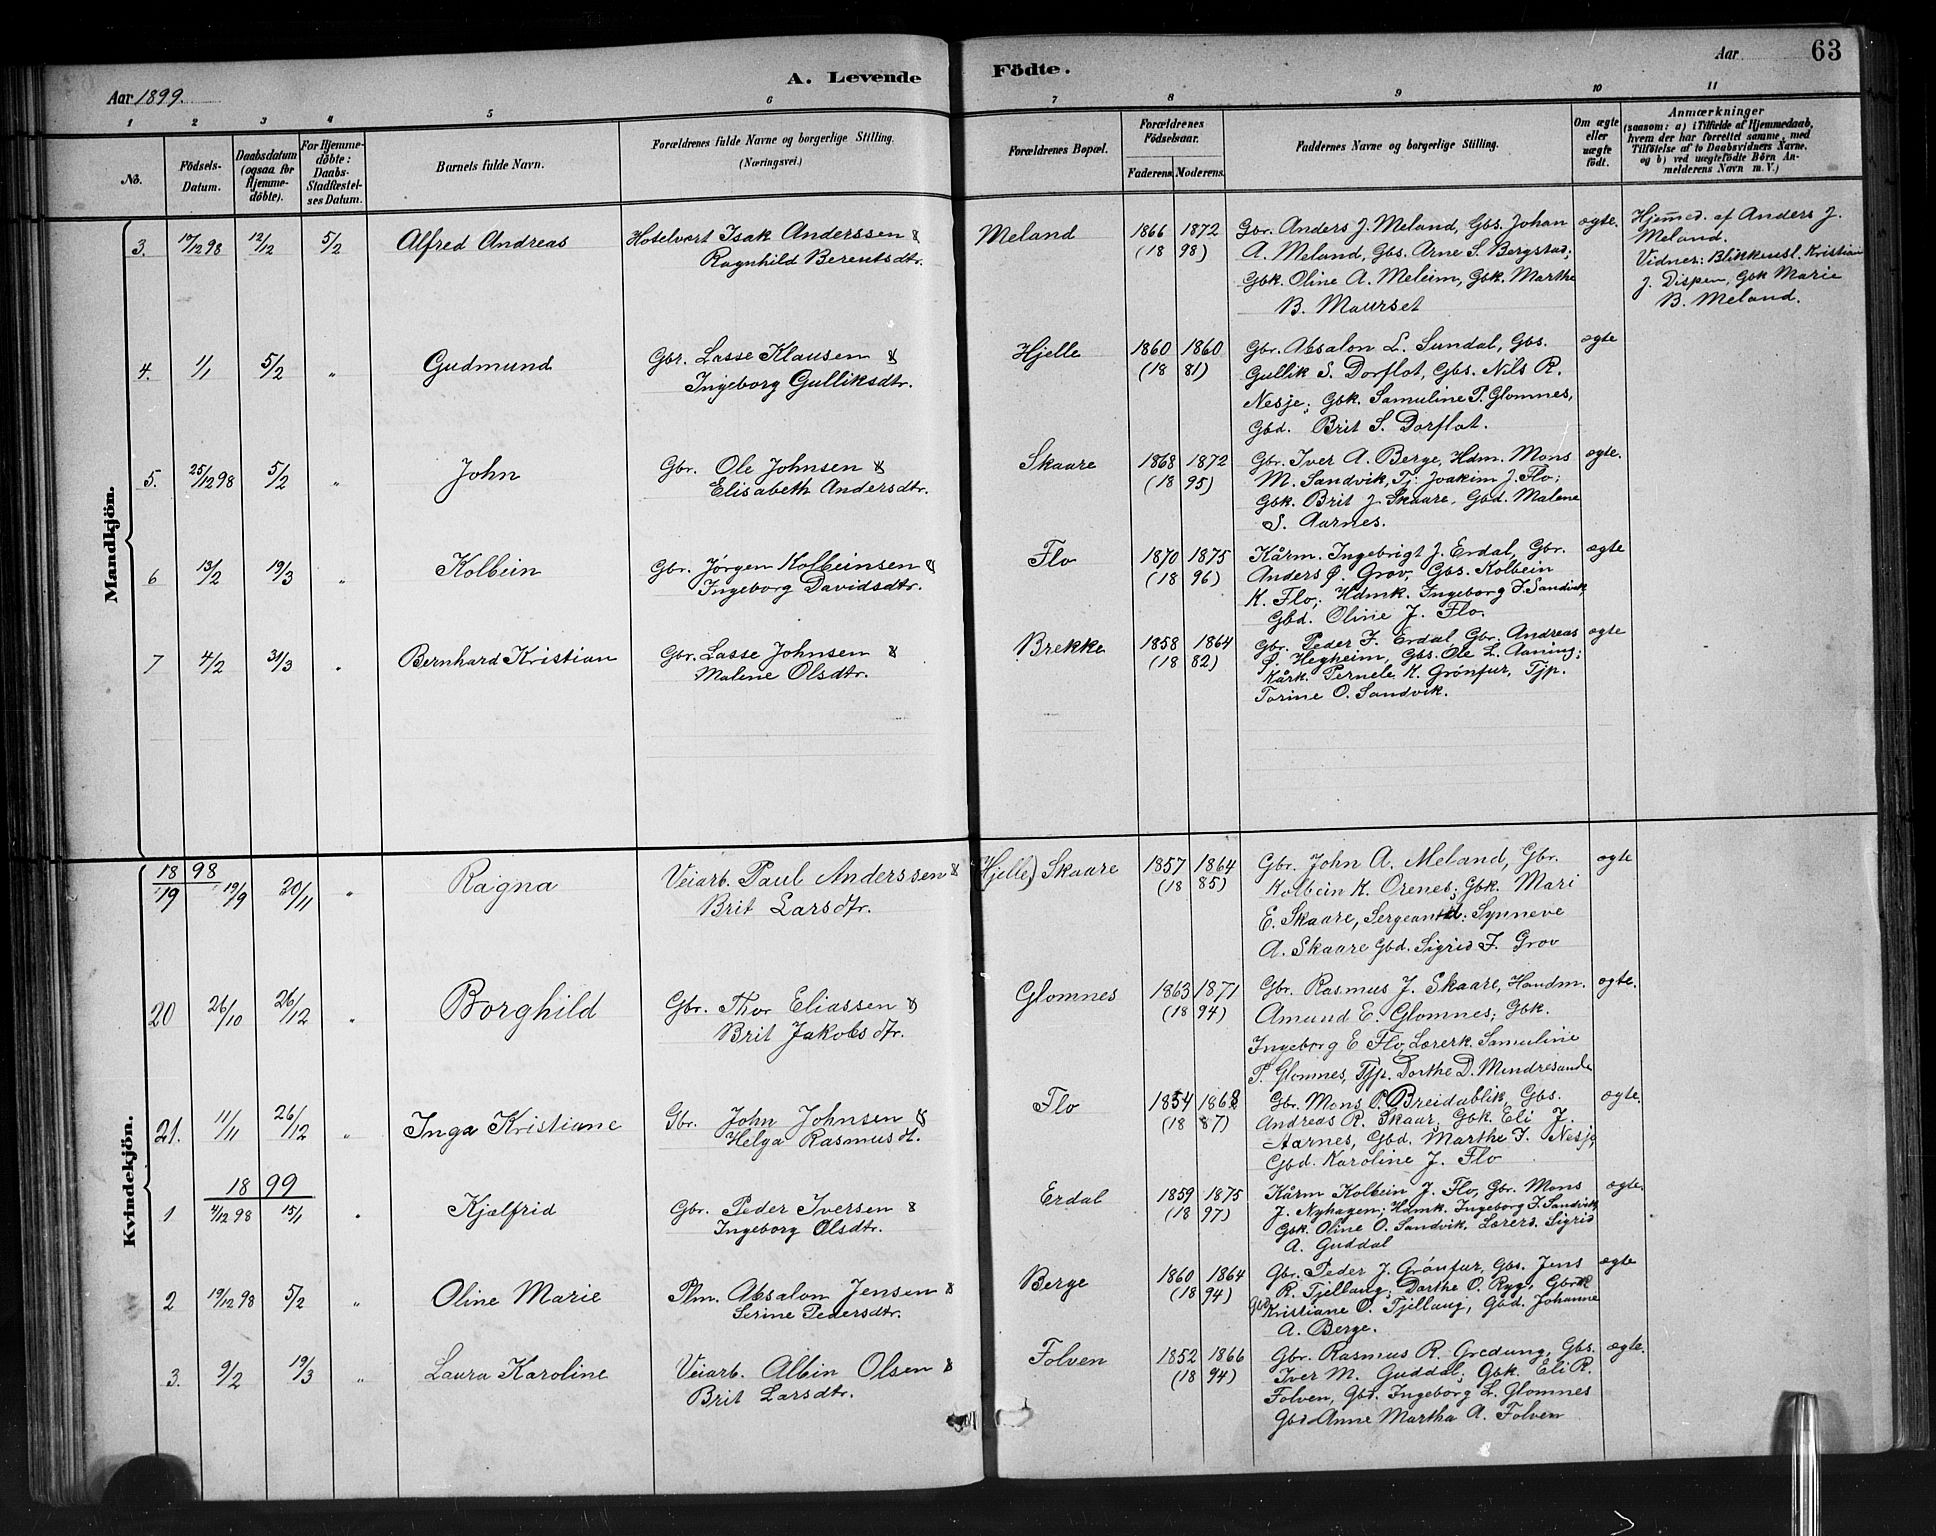 Aar 1899.
A. Levende Födte.
Aar 63
1 2 3 4 5 6 7 8 9 10 11
No.
Födsels-
Datum.
Daabsdatum
(ogsaa for
Hjemme-
döbte).
For Hjemme-
döbte:
Daabs-
Stadfæstel-
ses Datum.
Barnets fulde Navn.
Forældrenes fulde Navne og borgerlige Stilling.
(Næringsvei.)
Forældrenes Bopæl.
Forældrenes
Födselsaar.
Faderens. Moderens.
Faddernes Navne og borgerlige Stilling.
Om ægte
eller
uægte
födt.
Anmærkninger
(saasom: a) i Tilfælde af Hjemmedaab,
hvem der har forrettet samme, med
Tilföielse af to Daabsvidners Navne.
og b) ved uægtefödte Börn An-
melderens Navn m. V.)
Mandkjön.
3. 10/12 98 12/12 5/2 Alfred Andreas
Hotelvært Isak Anderssen &
Ragnhild Berentsdtr.
Meland
1866 1872
(18 98)
Gbr. Anders J. Meland, Gbs. Johan
A. Meland, Gbs. Arne S. Bergstad;
Gbk. Oline A. Meleim, Gbk. Marthe
B. Maurset
ægte.
Hjemmed. af Anders J.
Meland.
Vidner: Blikkensl. Kristian
J. Dispen, Gbk Marie
B. Meland.
4. 1/1 5/2 " Gudmund
Gbr. Lasse Klausen &
Ingeborg Gulliksdtr.
Hjelle
1860 1860
(18 81)
Gbr. Absalon L. Sundal, Gbs.
Gullik S. Dorflot, Gbs. Nils R.
Nesje; Gbk. Samuline P. Glomnes,
Gbd. Brit S. Dorflot.
ægte
5. 25/12 98 5/2 " John
Gbr. Ole Johnsen &
Elisabeth Andersdtr.
Skaare
1868 1872
(18 95)
Gbr. Iver A. Berge, Hdm. Mons
M. Sandvik, Tj. Joakim J. Flo;
Gbk. Brit J. Skaare, Gbd. Malene
S. Aarnes.
ægte.
6 13/2 19/3 " Kolbein
Gbr. Jørgen Kolbeinsen &
Ingeborg Davidsdtr.
Flo
1870 1875
(18 96)
Kårm. Ingebrigt J. Erdal, Gbr.
Anders Ø. Grov, Gbs. Kolbein
K. Flo; Hdmk. Ingeborg J. Sandvik
Gbd. Oline J. Flo.
ægte
7 4/2 31/3 " Bernhard Kristian
Gbr. Lasse Johnsen &
Malene Olsdtr.
Brekke
1858 1864
(18 82)
Gbr. Peder J. Erdal Gbr. Andreas
Ø. Hegheim, Gbs. Ole L. Aaning;
Kårk. Pernele K. Grønfur, Tjp.
Torine O. Sandvik.
ægte
Kvindekjön.
18 98
19 19/9 20/11 " Ragna
Veiarb. Paul Anderssen &
Brit Larsdtr.
(Hjelle) Skaare
1857 1864
(18 85)
Gbr. John A. Meland, Gbr.
Kolbein K. Orenes; Gbk. Mari
E. Skaare, Sergeantd: Synneve
A. Skaare Gbd. Sigrid J. Grov
ægte
20 26/10 26/12 " Borghild
Gbr. Thor Eliassen &
Brit Jakobsdtr.
Glomnes
1863 1871
(18 94)
Gbr. Rasmus J. Skaare, Handm.
Amund E. Glomnes; Gbk.
Ingeborg E Flo, Lærerk. Samuline
P. Glomnes, Tjp. Dorthe D. Mindresunde
ægte.
21. 11/11 26/12 " Inga Kristiane
Gbr. John Johnsen &
Helga Rasmusdt.
Flo
1854 1868
(18 87)
Gbr. Mons P. Breidablik, Gbs.
Andreas R. Skaar; Gbk. Eli J.
Aarnes, Gbd. Marthe J. Nesje,
Gbd. Karoline J. Flo
ægte.
18 99
1 4/12 98 15/1 " Kjælfrid
Gbr. Peder Iversen &
Ingeborg Olsdtr.
Erdal
1859 1875
(18 97)
Kårm Kolbein J. Flo, Gbr. Mons
J. Nyhagen; Hdmk. Ingeborg J. Sandvik
Gbk. Oline O. Sandvik, Lærerd. Sigrid
A. Guddal
ægte.
2 19/12 98 5/2 " Oline Marie
Plm. Absalon Jensen &
Serine Pedersdtr.
Berge
1860 1864
(18 94)
Gbr. Peder J. Grønfur, Gbs. Jens
R. Tjellaug; Dorthe O. Ryg, Gbrk
Gbd Kristiane O. Tjellaug, Gbd. Johanne
A. Berge.
ægte
3. 9/2 19/3 " Laura Karoline
Veiarb. Albin Olsen &
Brit Larsdtr.
Folven
1852 1866
(18 94)
Gbr. Rasmus R. Gredung, Gbs.
Iver M. Guddal; Gbk. Eli R.
Folven, Gbd. Ingeborg L. Glomnes
Gbd. Anne Martha A. Folven
ægte.